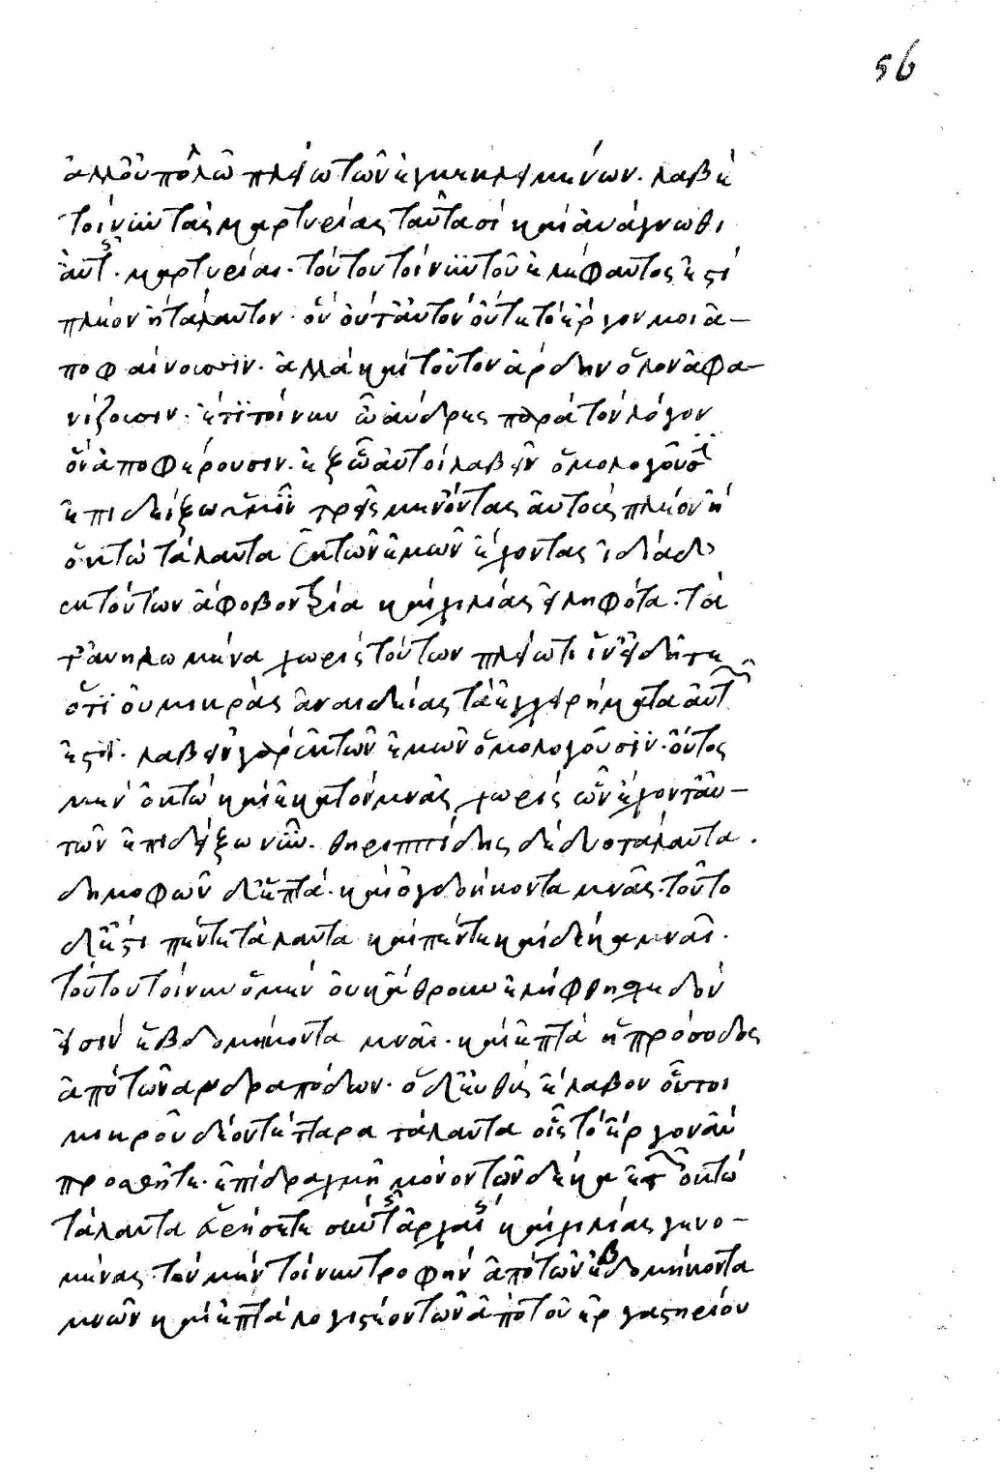 56
ἀλλ' οὐ πολλῷ πλείω τῶν ἐγκεκλημένων. λαβὲ
τοίνυν τὰς μαρτυρίας ταυτασὶ καὶ ἀνάγνωθι
αὐτοῖς. μαρτυρίαι. τούτου τοίνυν τοῦ ἐλέφαντος ἐστὶ
πλέον ἢ τάλαντον. ὃν οὔτ' αὐτὸν οὔτε τὸ ἔργον μοι ἀ-
ποφαίνουσιν. ἀλλὰ καὶ τοῦτον ἄρδην ὅλον ἀφα-
νίζουσιν. ἔτι τοίνυν ὦ ἄνδρες παρὰ τὸν λόγον
ὃν ἀποφέρουσιν. ἐξ ὧν αὐτοὶ λαβεῖν ὁμολογοῦσιν
ἐπιδείξω ὑμῖν τρεῖς μὲν ὄντας αὐτοὺς πλέον ἢ
ὀκτὼ τάλαντα ἐκ τῶν ἐμῶν ἔχοντας ἰδίᾳ δ'
ἐκ τούτων ἄφοβον τρία καὶ χιλίας εἰληφότα. τά
τ' ἀνηλωμένα χωρὶς τούτων πλείω τι ἵν' εἰδῆτε
ὅτι οὐ μικρᾶς ἀναιδείας τὰ ἐγχειρήματα αὐτῶν
ἐστι. λαβεῖν γὰρ ἐκ τῶν ἐμῶν ὁμολογοῦσιν. οὗτος
μὲν ὀκτὼ καὶ ἑκατὸν μνᾶς χωρὶς ὧν ἔχοντ' αὐ-
τὸν ἐπιδείξω νῦν. θηριππίδης δὲ δύο τάλαντα.
δημοφῶν δ' ἑπτὰ. καὶ ὀγδοήκοντα μνᾶς. τοῦτο
δ' ἐστὶ πέντε τάλαντα καὶ πεντεκαίδεκα μναῖ.
τούτου τοίνυν ὃ μὲν οὐκ ἀθρόον ἐλήφθη σχεδόν
εἰσὶν ἑβδομήκοντα μναῖ. καὶ ἑπτὰ ἡ πρόσοδος
ἀπὸ τῶν ἀνδραπόδων. ὃ δ' εὐθὺς ἔλαβον οὗτοι
μικροῦ δέοντ' τέτταρα τάλαντα οἷς τὸ ἔργον ἂν
προσθῆτε. ἐπὶ δραχμῇ μόνον τῶν δέκα ἐτῶν ὀκτὼ
τάλαντα εὑρήσετε σὺν τοῖς ἀρχαίοις καὶ χιλίας γενο-
μένας. τὴν μὲν τοίνυν τροφὴν ἀπὸ τῶν ἑβδομήκοντα
μνῶν καὶ ἑπτὰ λογιστέον τῶν ἀπὸ τοῦ ἐργαστηρίου